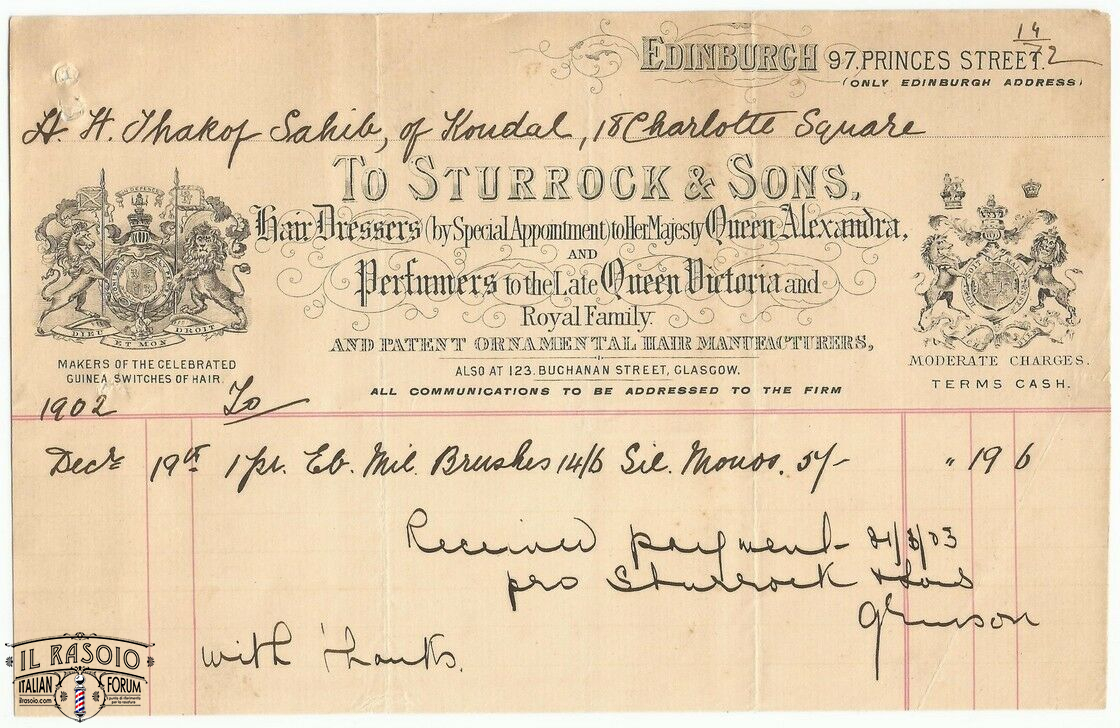 14
72
EDINBURGH 97, PRINCES STREET.
(ONLY EDINBURGH ADDRESS)
H. H. Thakof Sahib, of Kondal, 18 Charlotte Square
TO STURROCK & SONS,
Hair Dressers (by Special Appointment) to Her Majesty Queen Alexandra,
AND
Perfumers to the Late Queen Victoria and
Royal Family.
AND PATENT ORNAMENTAL HAIR MANUFACTURERS,
ALSO AT 123. BUCHANAN STREET, GLASGOW.
ALL COMMUNICATIONS TO BE ADDRESSED TO THE FIRM
DIEU ET MON DROIT
MAKERS OF THE CELEBRATED
GUINEA SWITCHES OF HAIR.
MODERATE CHARGES.
TERMS CASH.
1902 To
Decr 19th 1 pr. Eb. Mil. Brushes 14/6 Sil. Monos. 5/- " 19 6
Received payment 31/3/03
pro Sturrock & Sons
with Thanks.
IL RASOIO
ITALIAN FORUM
ilrasoio.com